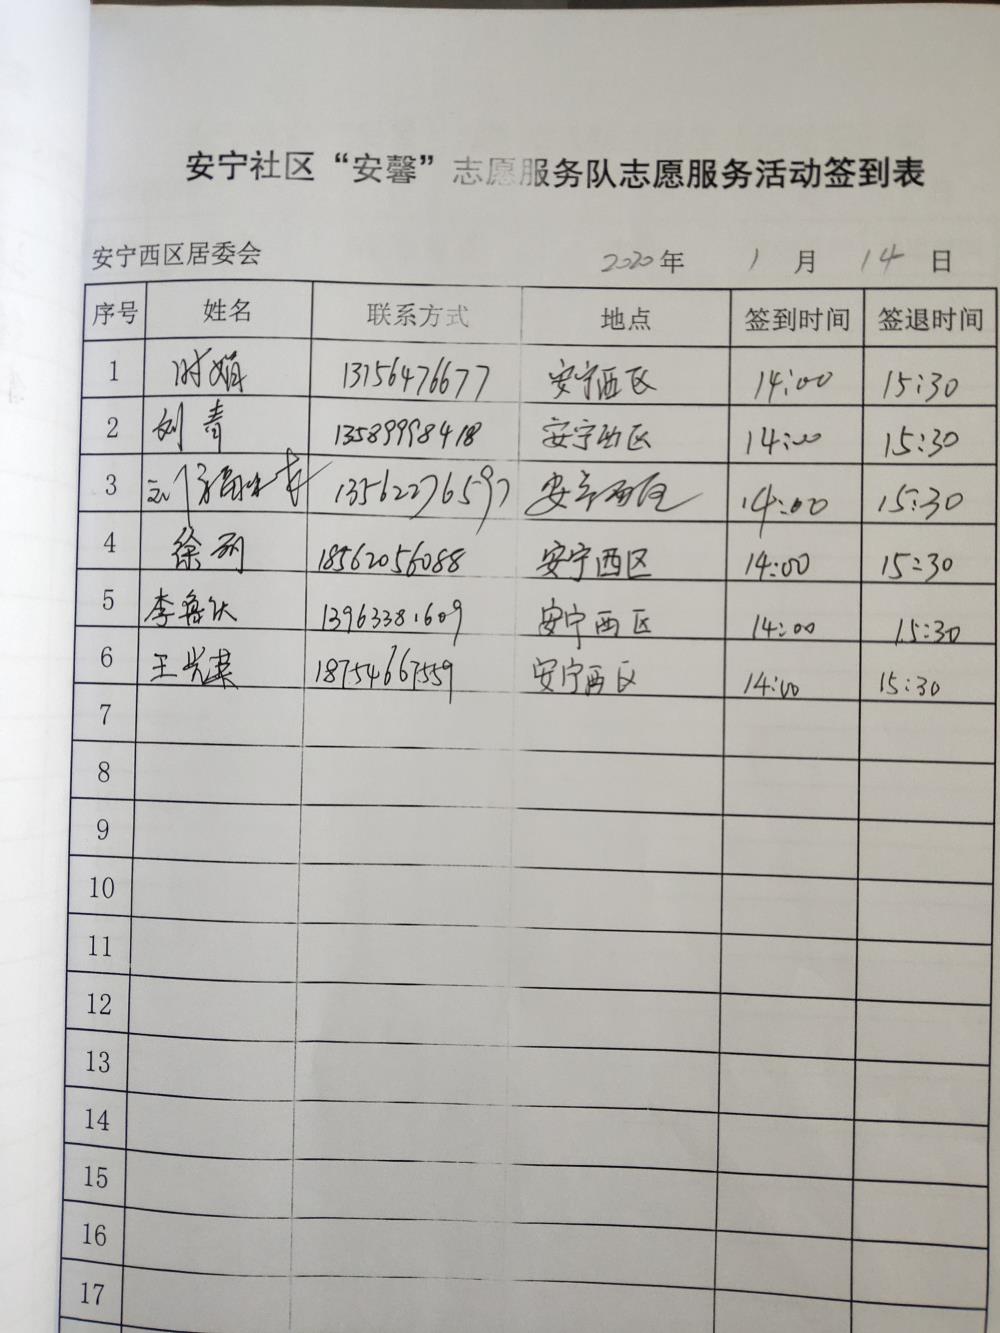 安宁社区“安馨”志愿服务队志愿服务活动签到表
安宁西区居委会 2020年 1月 14日
序号 姓名 联系方式 地点 签到时间 签退时间
1 时娟 13156476677 安宁西区 14:00 15:30
2 刘青 13589998418 安宁西区 14:00 15:30
3 13562276597 安宁西区 14:00 15:30
4 徐丽 18562056088 安宁西区 14:00 15:30
5 李 13963381609 安宁西区 14:00 15:30
6 王 18754667559 安宁西区 14:00 15:30
7
8
9
10
11
12
13
14
15
16
17